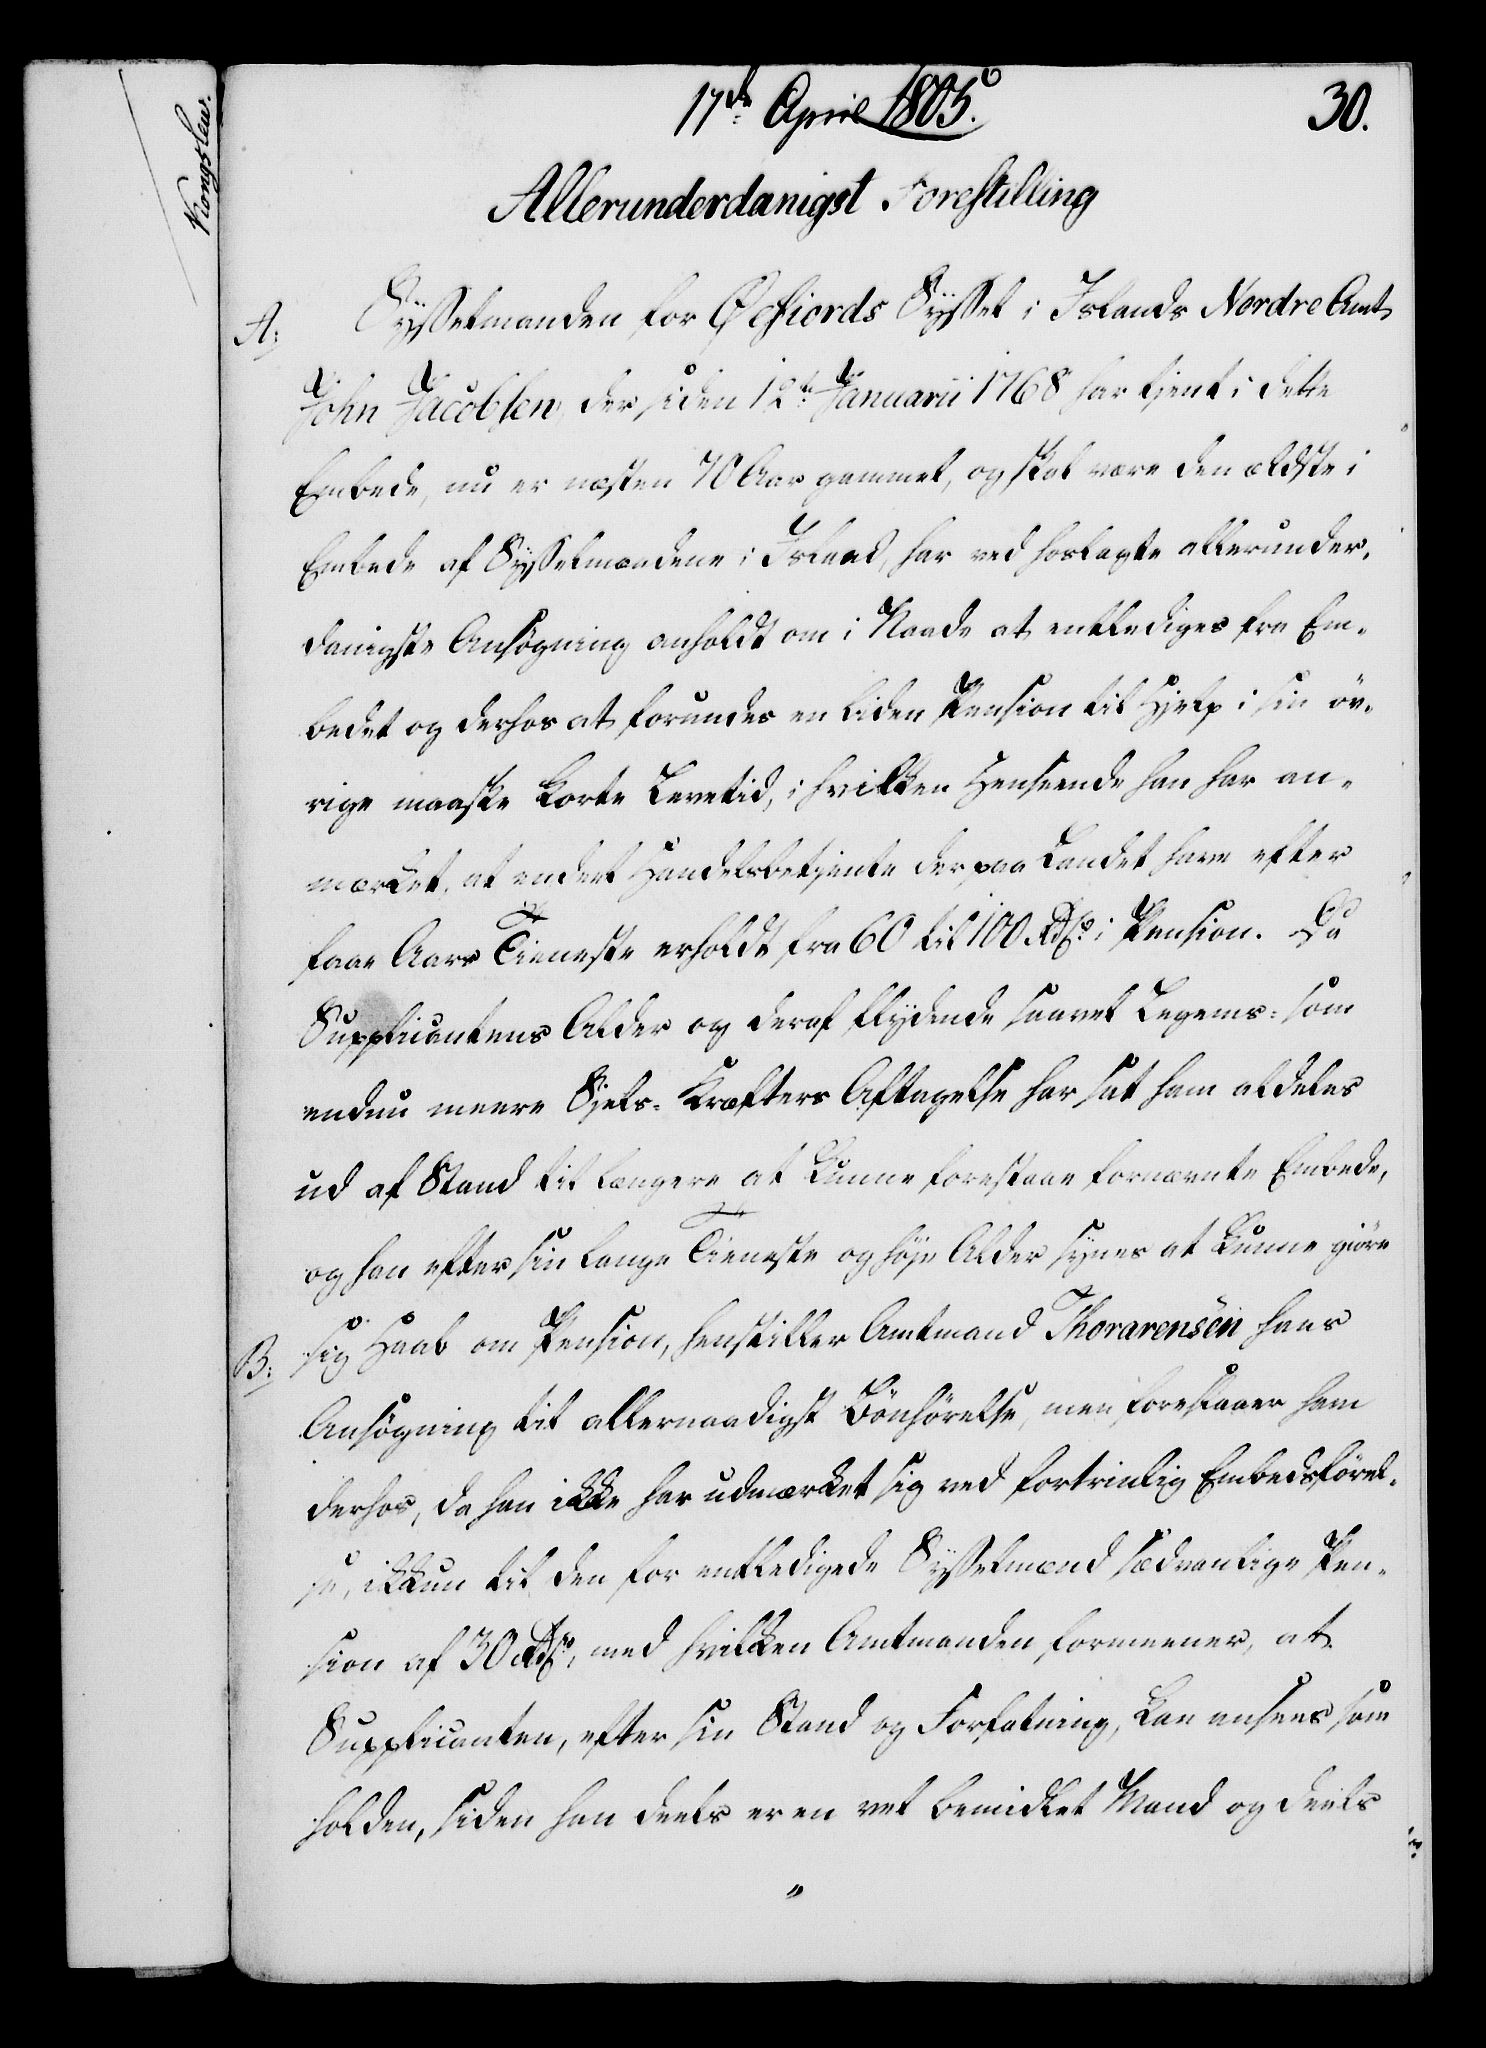 17de April 1805.
30.
Kongslew.
Allerunderdanigst Forestilling
A: Sysselmanden for Øefiords Syssel i Islands Nordre Amt
John Jacobsen, der siden 12te Januarii 1768 har tjent i dette
Embede, nu er næsten 70 Aar gammel, og skal være den ældste i
Embede af Sysselmændene i Island, har ved hoslagte allerunder-
danigste Ansøgning anholdt om i Naade at entlediges fra Em-
bedet og derhos at forundes en liden Pension til Hjelp i sin öv-
rige maaske korte Levetid, i hvilken Henseende han har an-
mærket, at endeel Handelsbetjente der paa Landet have efter
faae Aars Tieneste erholdt fra 60 til 100 Rdlr i Pension. Da
Supplicantens Alder og deraf flydende saavel Legems- som
endnu meere Sjels-Kræfters Aftagelse har sat ham aldeles
ud af Stand til længere at kunne forestaae fornævnte Embede,
og han efter sin lange Tieneste og høje Alder synes at kunne giöre
B: sig Haab om Pension, henstiller Amtmand Thorarensen hans
Ansøgning til allernaadigst Bönhörelse, men foreslaaer ham
derhos, da han ikke har udmærket sig ved fortrinlig Embedsförel-
se, ikkun til den for entledigede Sysselmænd sædvanlige Pen-
sion af 30 Rdlr, med hvilken Amtmanden formeener, at
Supplicanten, efter sin Stand og Forfatning, kan ansees som
holden, siden han deels er en vel bemidlet Mand og deels